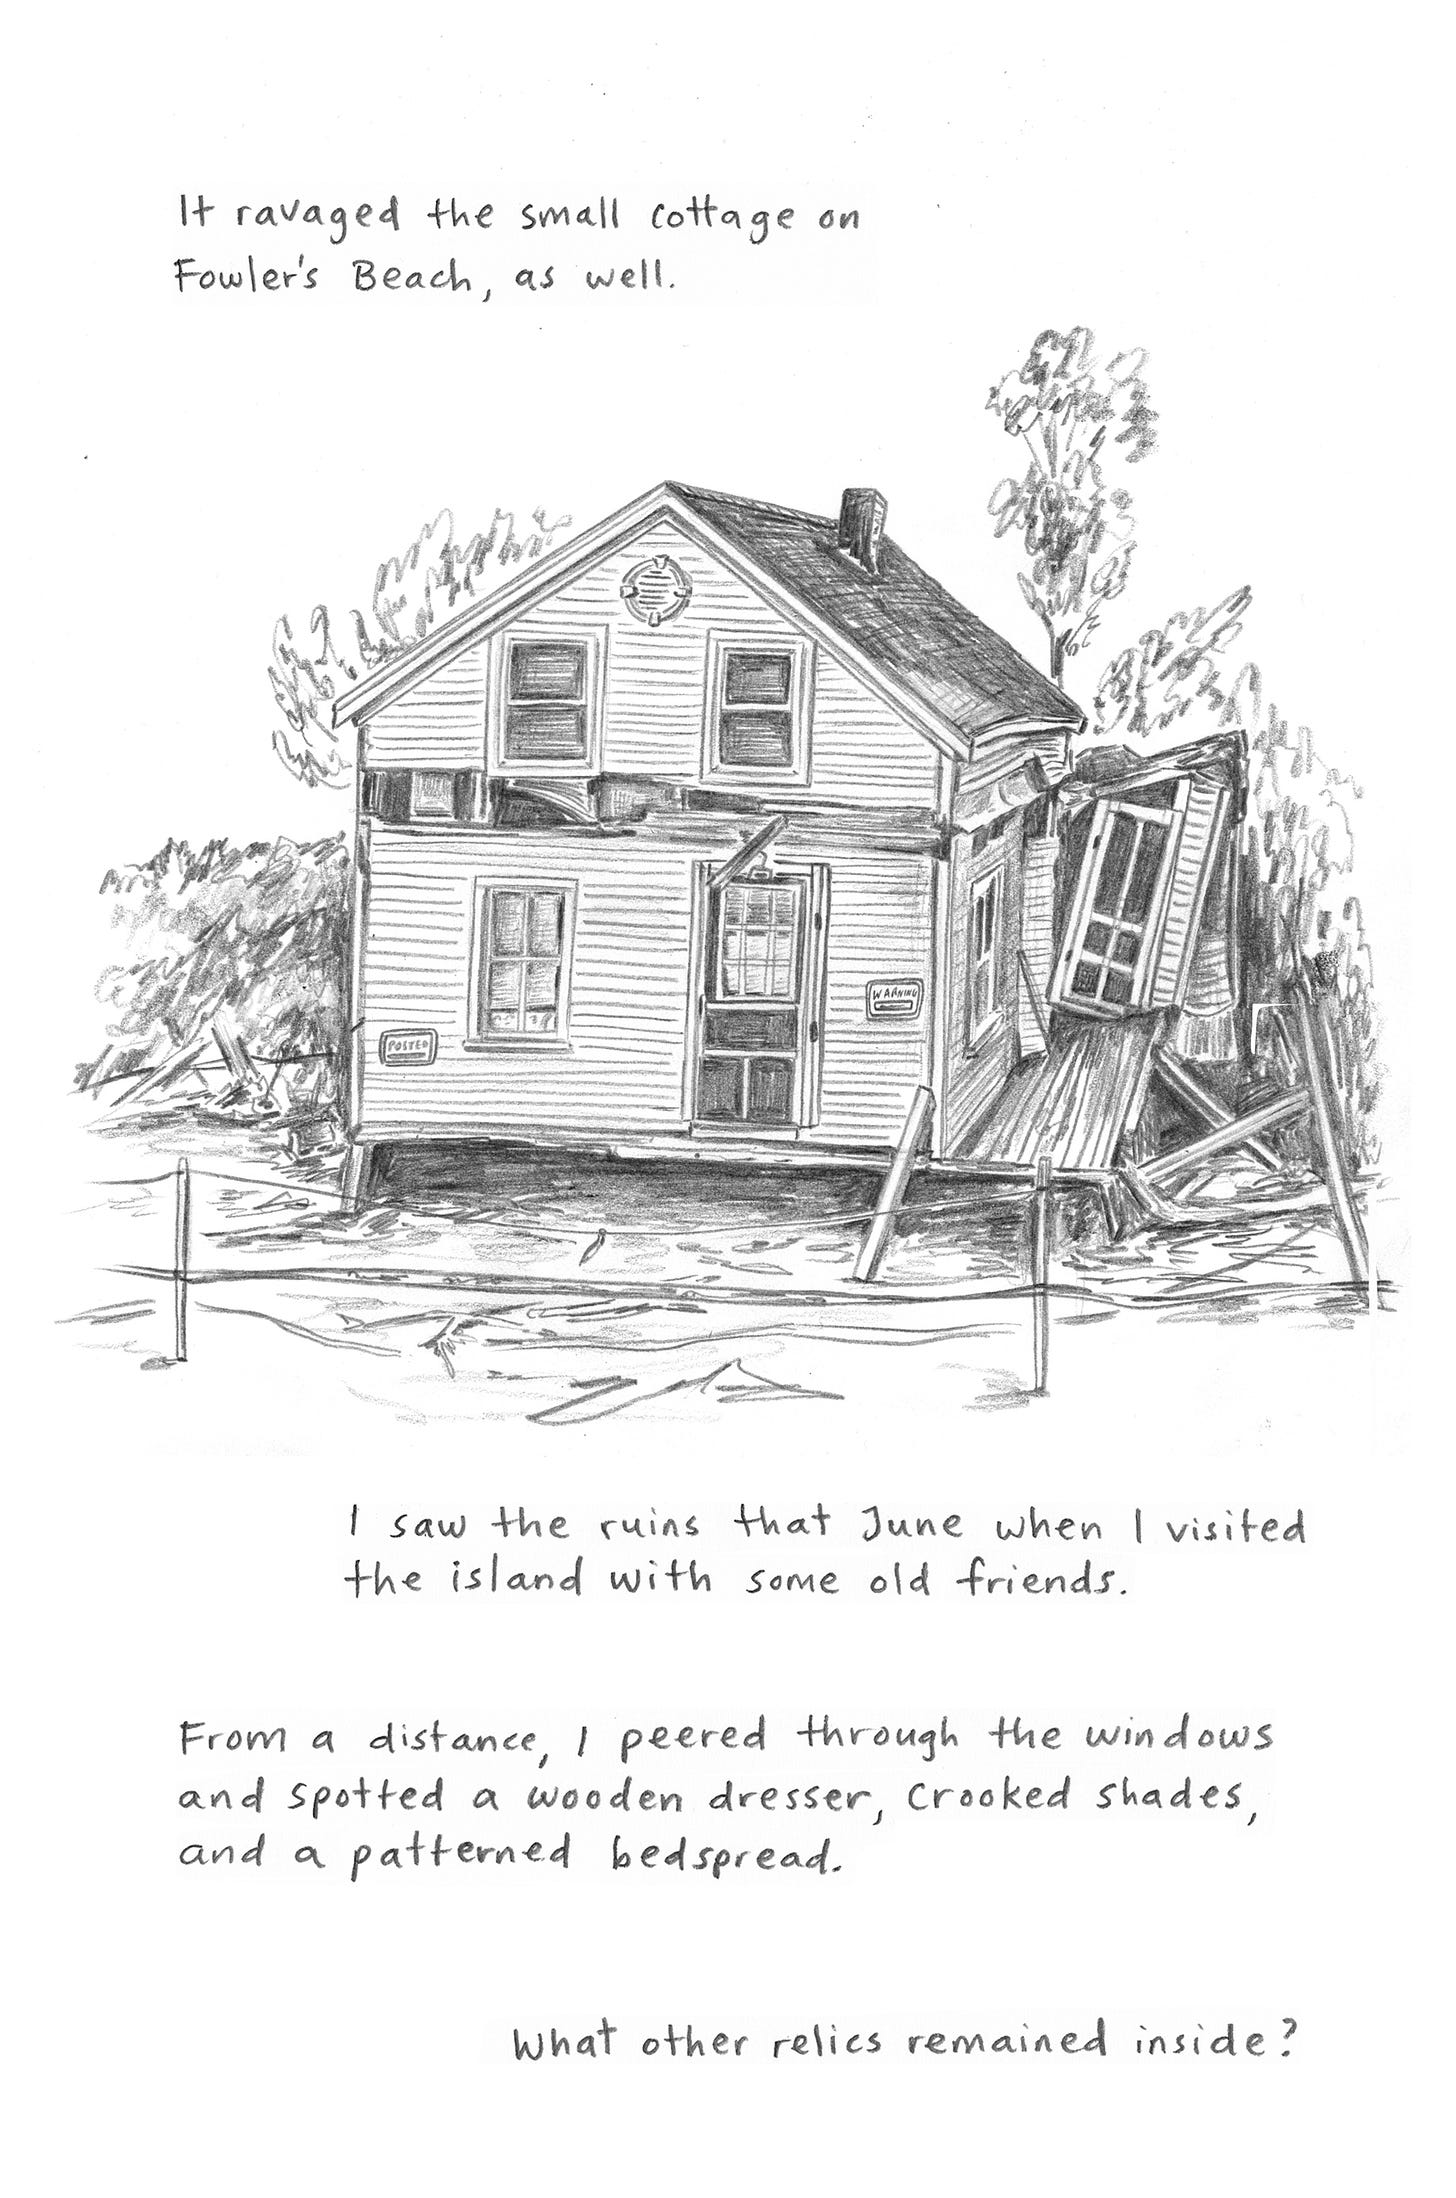 It ravaged the small cottage on
Fowler's Beach, as well.
POSTED
WARNING
I saw the ruins that June when I visited
the island with some old friends.
From a distance, I peered through the windows
and spotted a wooden dresser, crooked shades,
and a patterned bedspread.
What other relics remained inside?